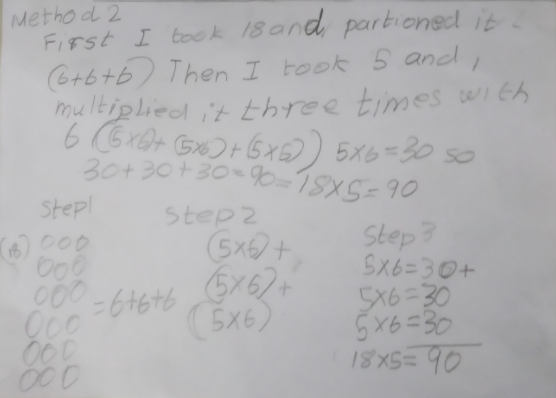 Method 2
First I took 18 and, partioned it
(6+6+6) Then I took 5 and,
multiplied it three times with
6 ((5x6)+ (5x6)+(5x6)) 5x6=30 so
30+30+30=90=18x5=90
Step1
Step 2
Step 3
(18) 000
000
000
000
000
000
=6+6+6
(5x6)+
(5x6)+
(5x6)
5x6=30+
5x6=30
5x6=30
18x5=90